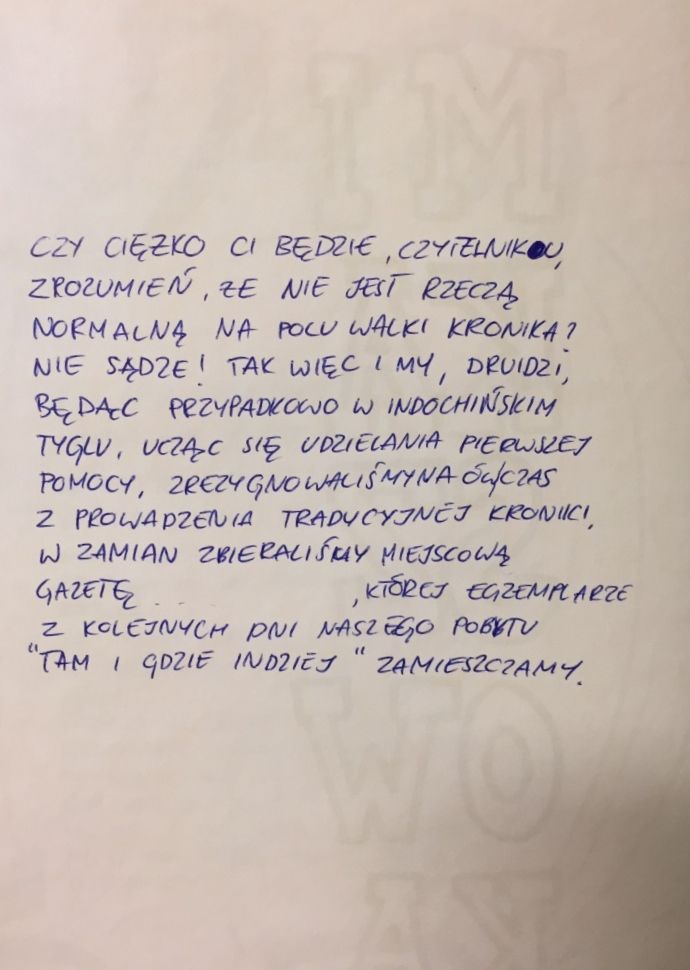 CZY CIĘŻKO CI BĘDZIE, CZYTELNIKOU,
ZROZUMIEŃ, ŻE NIE JEST RZECZĄ
NORMALNĄ NA POLU WALKI KRONIKA?
NIE SĄDZE! TAK WIĘC I MY, DRUIDZI,
BĘDĄC PRZYPADKOWO W INDOCHIŃSKIM
TYGLU, UCZĄC SIĘ UDZIELANIA PIERWSZEJ
POMOCY, ZREZYGNOWALIŚMY NA ÓWCZAS
Z PROWADZENIA TRADYCYJNEJ KRONIKI.
W ZAMIAN ZBIERALIŚMY MIEJSCOWĄ
GAZETĘ , KTÓREJ EGZEMPLARZE
Z KOLEJNYCH DNI NASZEGO POBYTU
"TAM I GDZIE INDZIEJ" ZAMIESZCZAMY.